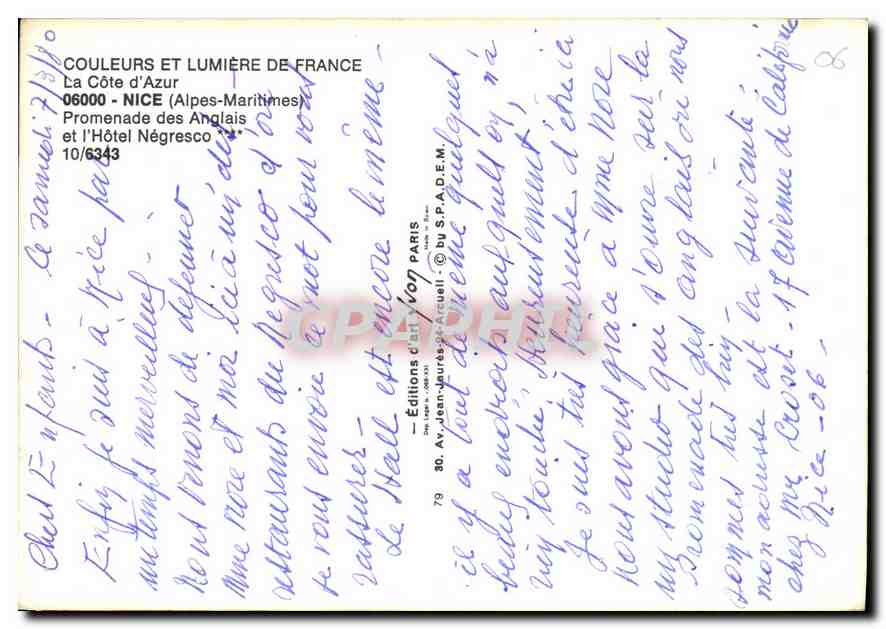 COULEURS ET LUMIÈRE DE FRANCE
La Côte d'Azur
06000 - NICE (Alpes-Maritimes)
Promenade des Anglais
et l'Hôtel Négresco ****
10/6343
Chers Enfants - ce samedi 7/3/80
Enfin je suis à Nice par
un temps merveilleux -
Nous venons de dejeuner
Mme More et moi ici à un des
restaurants du Negresco d'où
je vous envoie ce mot pour vous
rassurer -
Le Hall est encore le même -
— Éditions d'art Yvon PARIS
Made in Spain
79 30. Av. Jean-Jaurès-94-Arcueil - © by S.P.A.D.E.M.
CPARHTL
il y a tout de même quelques
beaux endroits auxquels on n'a
rien touché, heureusement,
Je suis très heureuse d'être ici
nous avons grâce à Mme More
un studio qui s'ouvre sur la
Promenade des anglais où nous
sommes très bien -
mon adresse est la suivante
chez Mr Croset - 17 avenue de Californie
Nice - 06 -